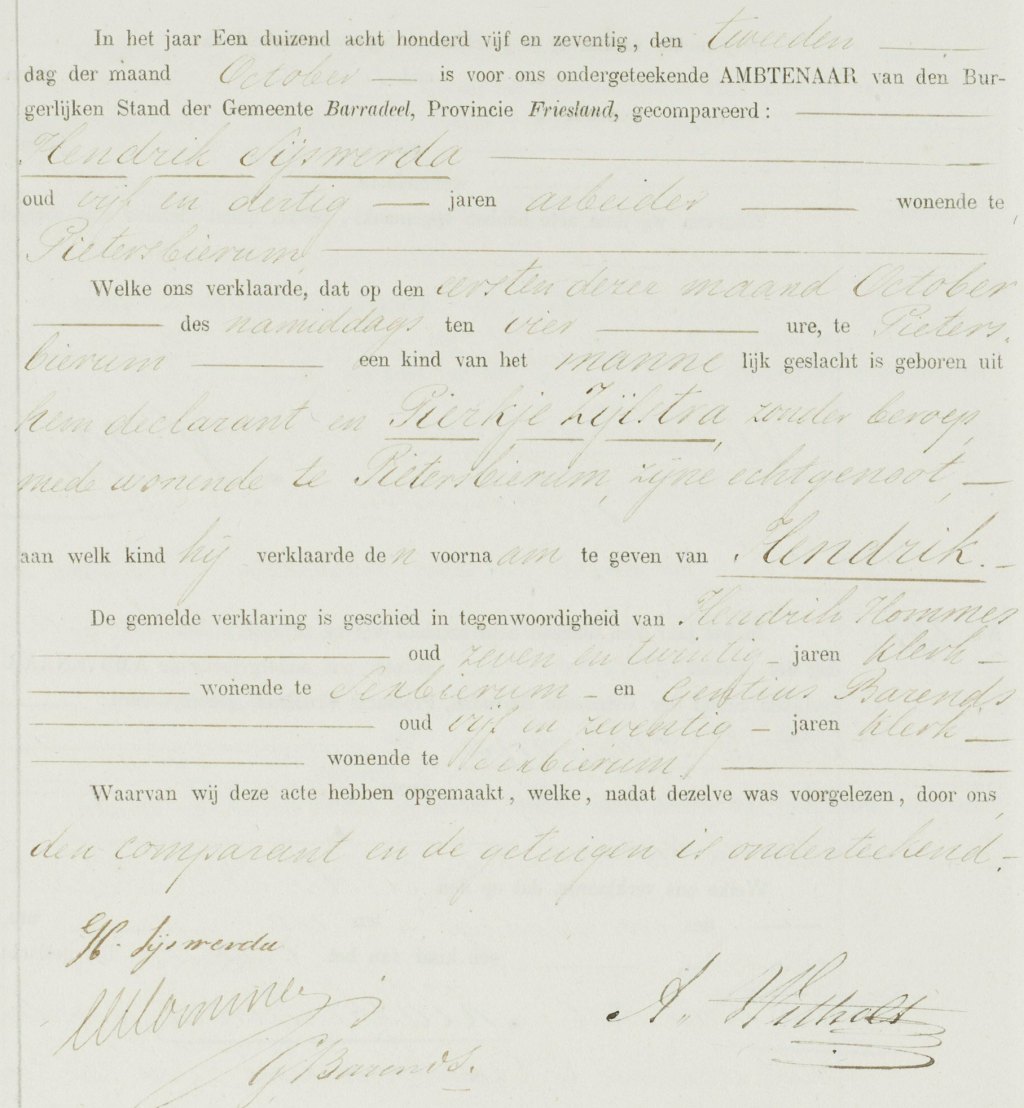 In het jaar Een duizend acht honderd vijf en zeventig, den tweeden
dag der maand October is voor ons ondergeteekende AMBTENAAR van den Bur-
gerlijken Stand der Gemeente Barradeel, Provincie Friesland, gecompareerd:
Hendrik Sijswerda
oud vijf en dertig jaren arbeider wonende te
Pietersbierum,
Welke ons verklaarde, dat op den eersten dezer maand October
des namiddags ten vier ure, te Pieters-
bierum een kind van het manne lijk geslacht is geboren uit
hem declarant en Pierkje Zijlstra, zonder beroep,
mede wonende te Pietersbierum, zijne echtgenoot,
aan welk kind hij verklaarde de n voorna am te geven van Hendrik.
De gemelde verklaring is geschied in tegenwoordigheid van Hendrik Hommes
oud zeven en twintig jaren klerk
wonende te Sexbierum en Gentius Barends
oud vijf en zeventig jaren klerk
wonende te Sexbierum.
Waarvan wij deze acte hebben opgemaakt, welke, nadat dezelve was voorgelezen, door ons,
den comparant en de getuigen is onderteekend.
H. Sijswerda
HHommes
A. Witholt
GBarends.